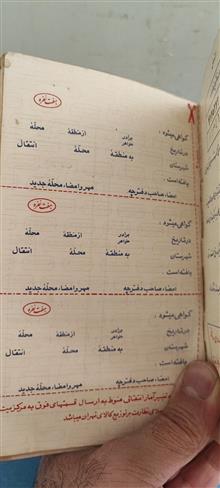 هفت نفره
گواهی میشود ، برادر خواهر از منطقهٔ محلهٔ
در تاریخ به منطقهٔ محلهٔ انتقال
شهرستان
یافته است .
امضاء صاحب دفترچه مهر و امضاء محلهٔ جدید
هفت نفره
گواهی میشود ، برادر خواهر از منطقهٔ محلهٔ
در تاریخ به منطقهٔ محلهٔ انتقال
شهرستان
یافته است .
امضاء صاحب دفترچه مهر و امضاء محلهٔ جدید
هفت نفره
گواهی میشود ، برادر خواهر از منطقهٔ محلهٔ
در تاریخ به منطقهٔ محلهٔ انتقال
شهرستان
یافته است .
امضاء صاحب دفترچه مهر و امضاء محلهٔ جدید
آمار انتقالی منوط به ارسال قسمتهای فوق به مرکز
نظارت بر توزیع کالای تهران میباشد